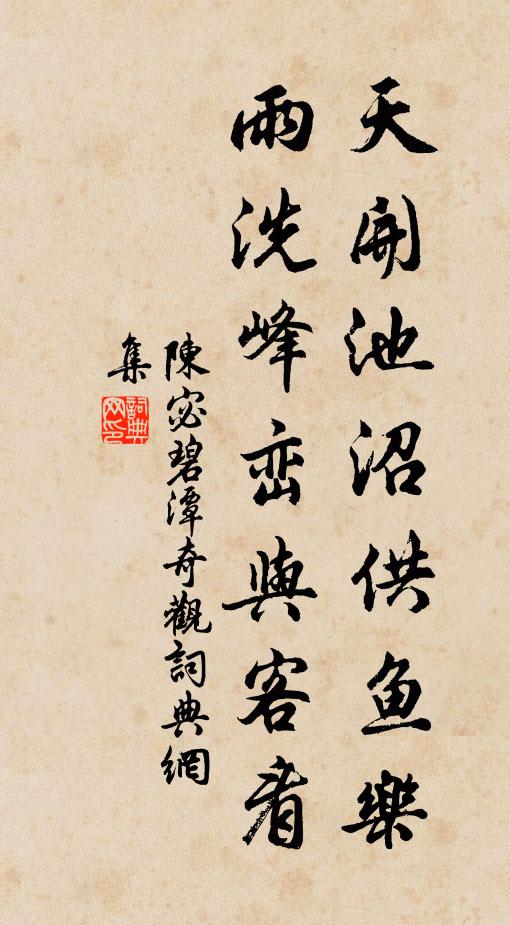 天開池沼供鱼樂
雨洗峰巒與客看
陳宓碧潭奇觀詞典網
集
詞典
网印